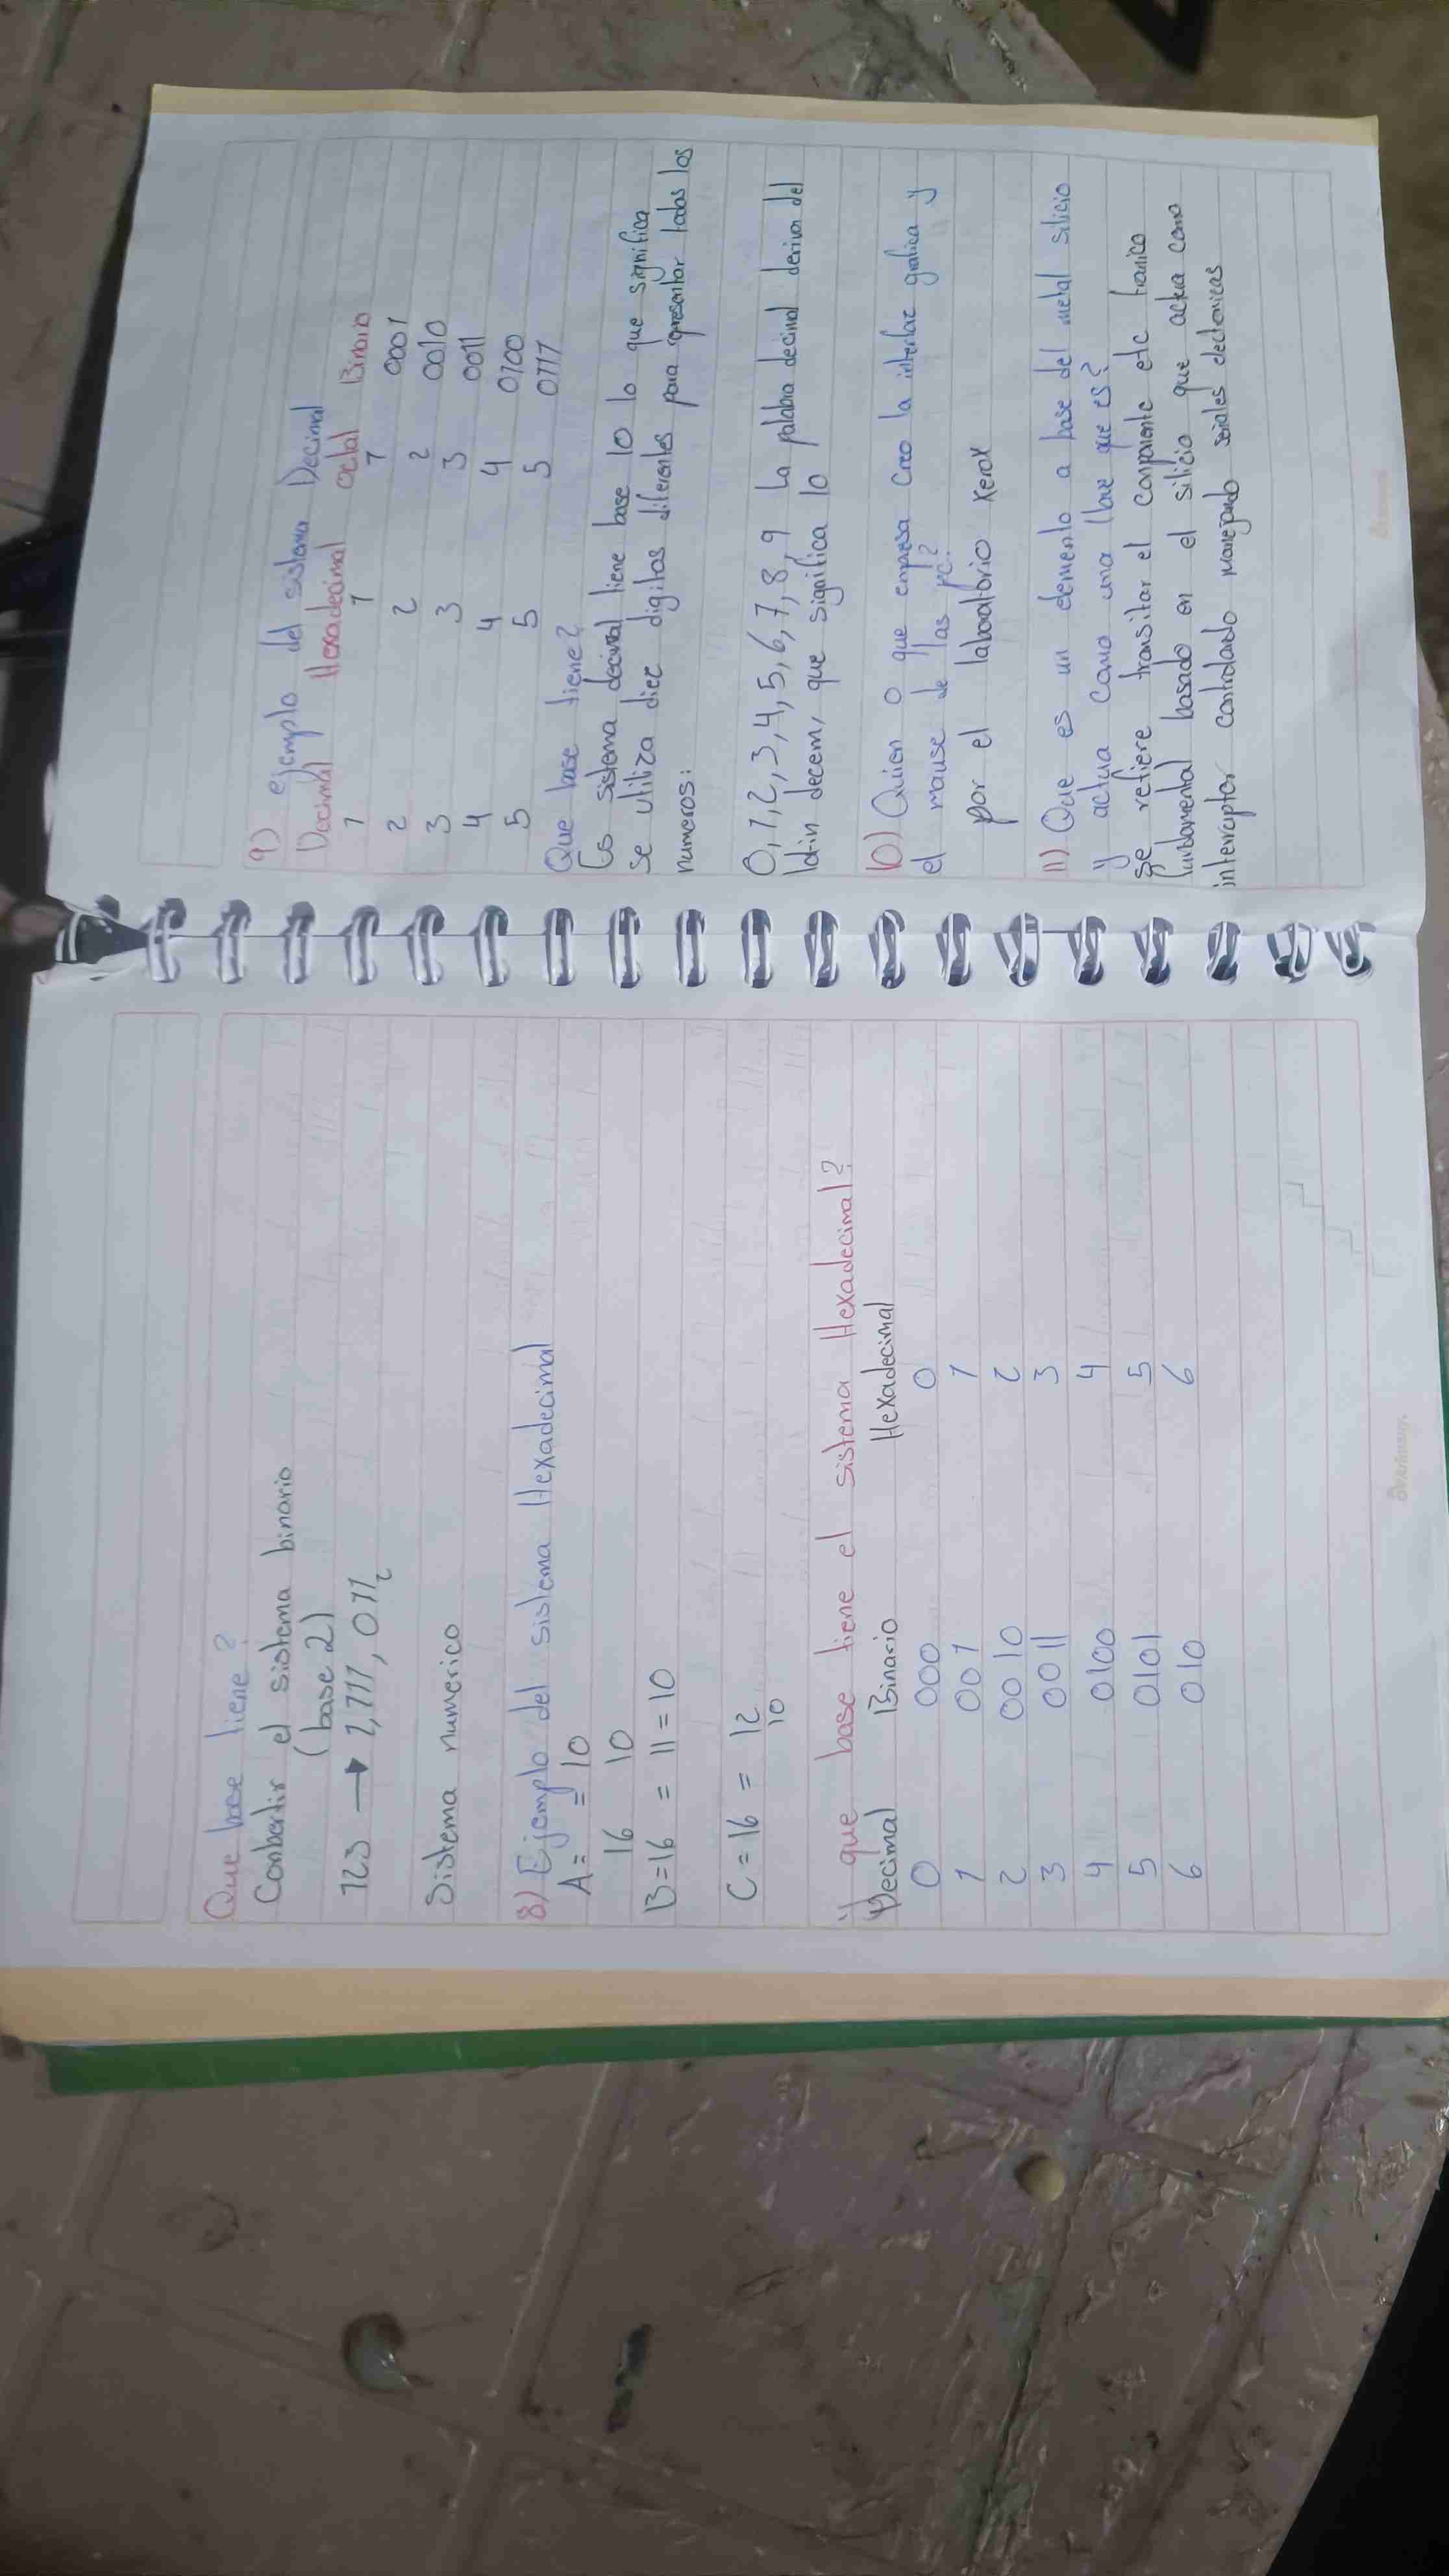 Que base tiene?
Conbertir el sistema binario
(base 2)
123 → 1,111,011₂
Sistema numerico
8) Ejemplo del sistema Hexadecimal
A = = 10
16 10
B = 16 = 11 = 10
C = 16 = 12
10
y que base tiene el sistema Hexadecimal?
Decimal Binario Hexadecimal
0 000 0
1 001 1
2 0010 2
3 0011 3
4 0100 4
5 0101 5
6 010 6
9) ejemplo del sistema Decimal
Decimal Hexadecimal octal Binario
1 1 1 0001
2 2 2 0010
3 3 3 0011
4 4 4 0100
5 5 5 0111
Que base tiene?
Es sistema decimal tiene base 10 lo que significa
se utiliza diez digitos diferentes para presentar todos los
numeros:
0,1,2,3,4,5,6,7,8,9 La palabra decimal deriva del
latin decem, que significa 10
10) Quien o que empresa creo la interfaz grafica y
el mause de las pc?
por el laboratorio xerox
11) Que es un elemento a base del metal silicio
y actua como una llave que es?
se refiere transitar el componente etc tronico
fundamental basado en el silicio que actua como
interruptor controlado manejando señales electonicas